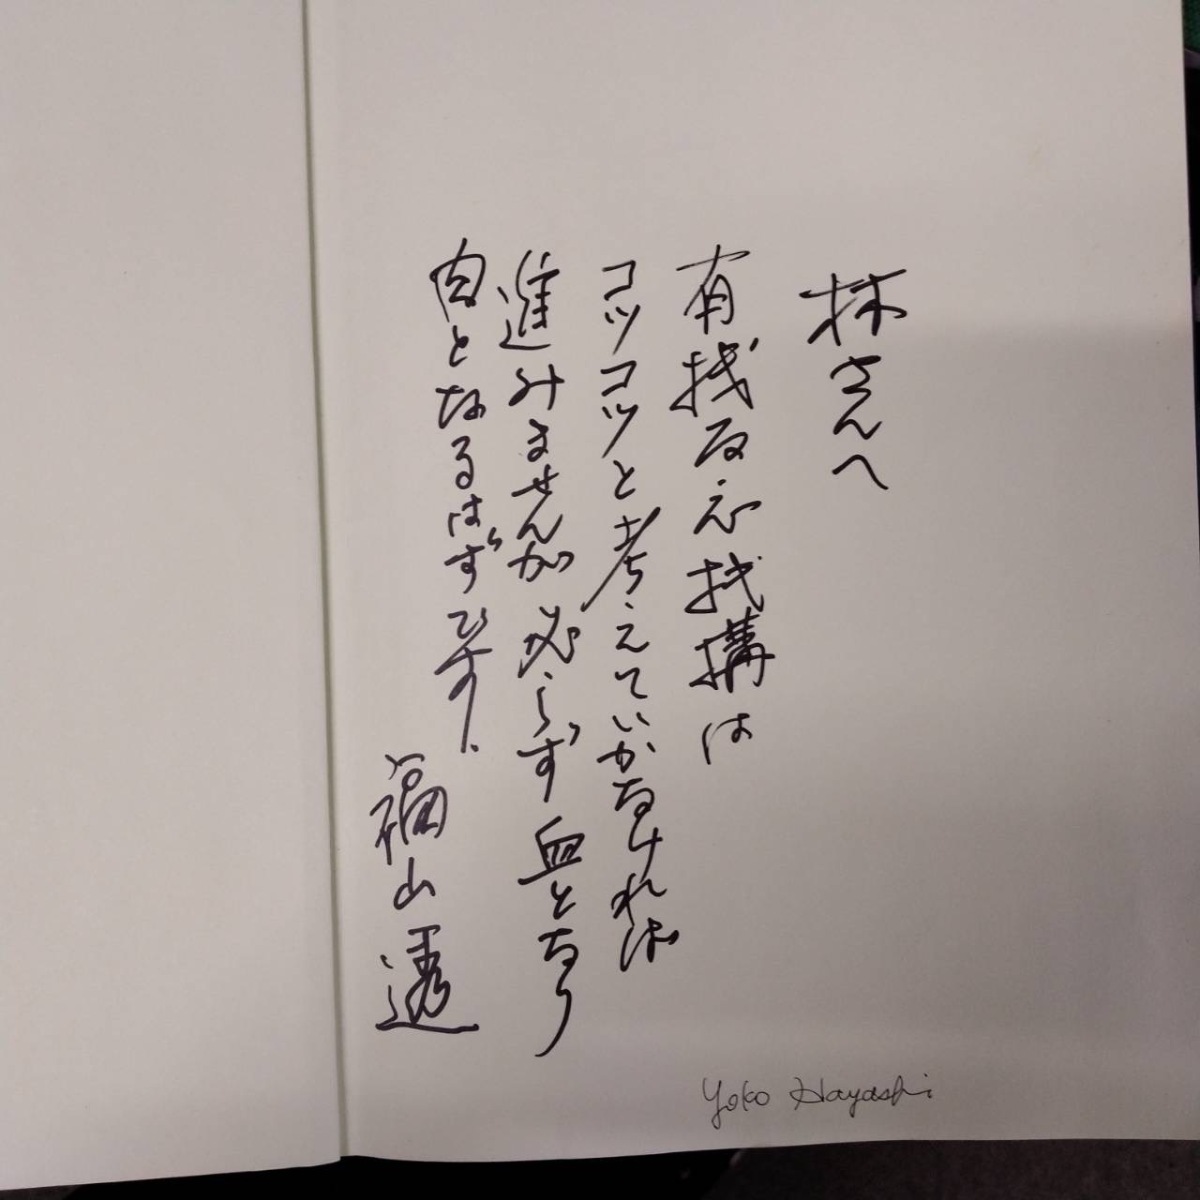 林さんへ
有機反応機構は
コツコツと考えていかなければ
進みませんが必らず血となり
肉となるはずです.
福山透
Yoko Hayashi